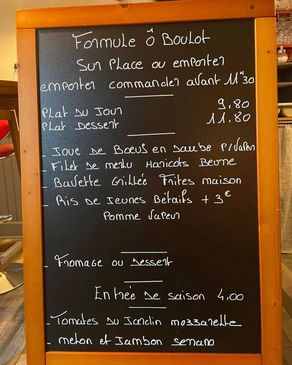 Formule Ô Boulot
Sur Place ou emporter
emporter commander avant 11H30
Plat du Jour 9.80
Plat Dessert 11.80
- Joue de Bœufs en Daube P/Vapeur
- Filet de merlu Haricots Beurre
- Bavette Grillée Frites maison
- Ris de Jeunes Betails + 3€
Pomme Vapeur
- Fromage ou Dessert
Entrée de saison 4.00
- Tomates du Jardin mozzarelle
- melon et Jambon serrano